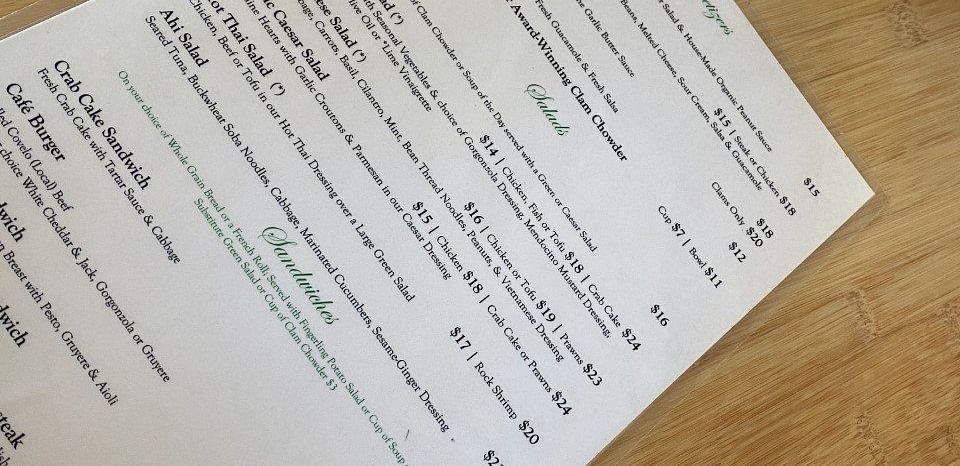 $15
Salad & House-Made Organic Peanut Sauce
$15 | Steak or Chicken $18
Beans, Melted Cheese, Sour Cream, Salsa & Guacamole
$18
Garlic Butter Sauce
Clams Only $20
Fresh Guacamole & Fresh Salsa
$12
Award-Winning Clam Chowder
Cup $7 | Bowl $11
Salads
of Clam Chowder or Soup of the Day served with a Green or Caesar Salad
$16
(*)
with Seasonal Vegetables & choice of Gorgonzola Dressing, Mendocino Mustard Dressing,
Olive Oil or *Lime Vinaigrette
$14 | Chicken, Fish or Tofu $18 | Crab Cake $24
Salad (*)
Carrots, Basil, Cilantro, Mint, Bean Thread Noodles, Peanuts, & Vietnamese Dressing
$16 | Chicken or Tofu $19 | Prawns $23
Caesar Salad
Hearts with Garlic Croutons & Parmesan in our Caesar Dressing,
$15 | Chicken $18 | Crab Cake or Prawns $24
Thai Salad (*)
Chicken, Beef or Tofu in our Hot Thai Dressing over a Large Green Salad
$17 | Rock Shrimp $20
Ahi Salad
Seared Tuna, Buckwheat Soba Noodles, Cabbage, Marinated Cucumbers, Sesame-Ginger Dressing
Sandwiches
On your choice of Whole Grain Bread or a French Roll; Served with Fingerling Potato Salad or Cup of Soup
Substitute Green Salad or Cup of Clam Chowder $3
Crab Cake Sandwich
Fresh Crab Cake with Tartar Sauce & Cabbage
Café Burger
Covelo (Local) Beef
choice White Cheddar & Jack, Gorgonzola or Gruyere
Breast with Pesto, Gruyere & Aioli